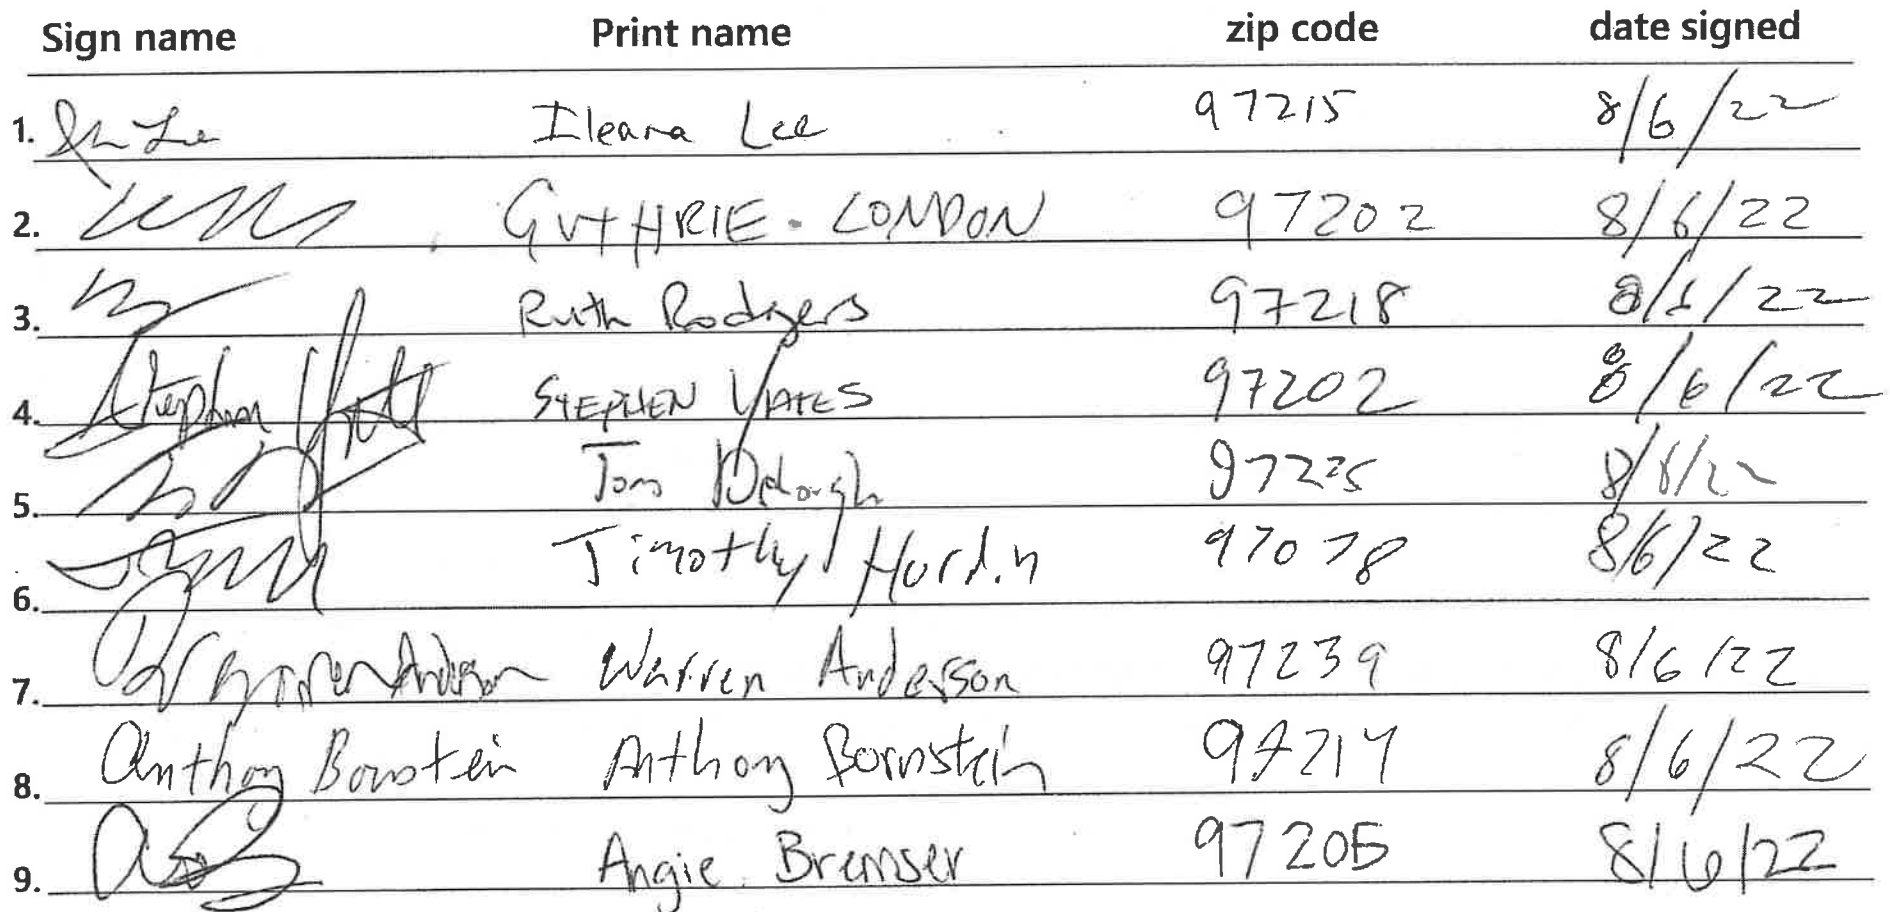 Sign name Print name zip code date signed
1. Ileana Lee 97215 8/6/22
2. GUTHRIE - LONDON 97202 8/6/22
3. Ruth Rodgers 97218 8/6/22
4. Stephen Yates STEPHEN YATES 97202 8/6/22
5. Tom 97225 8/6/22
6. Timothy Hardin 97078 8/6/22
7. Warren Anderson Warren Anderson 97239 8/6/22
8. Anthony Bornstein Anthony Bornstein 97214 8/6/22
9. Angie Bremser 97205 8/6/22